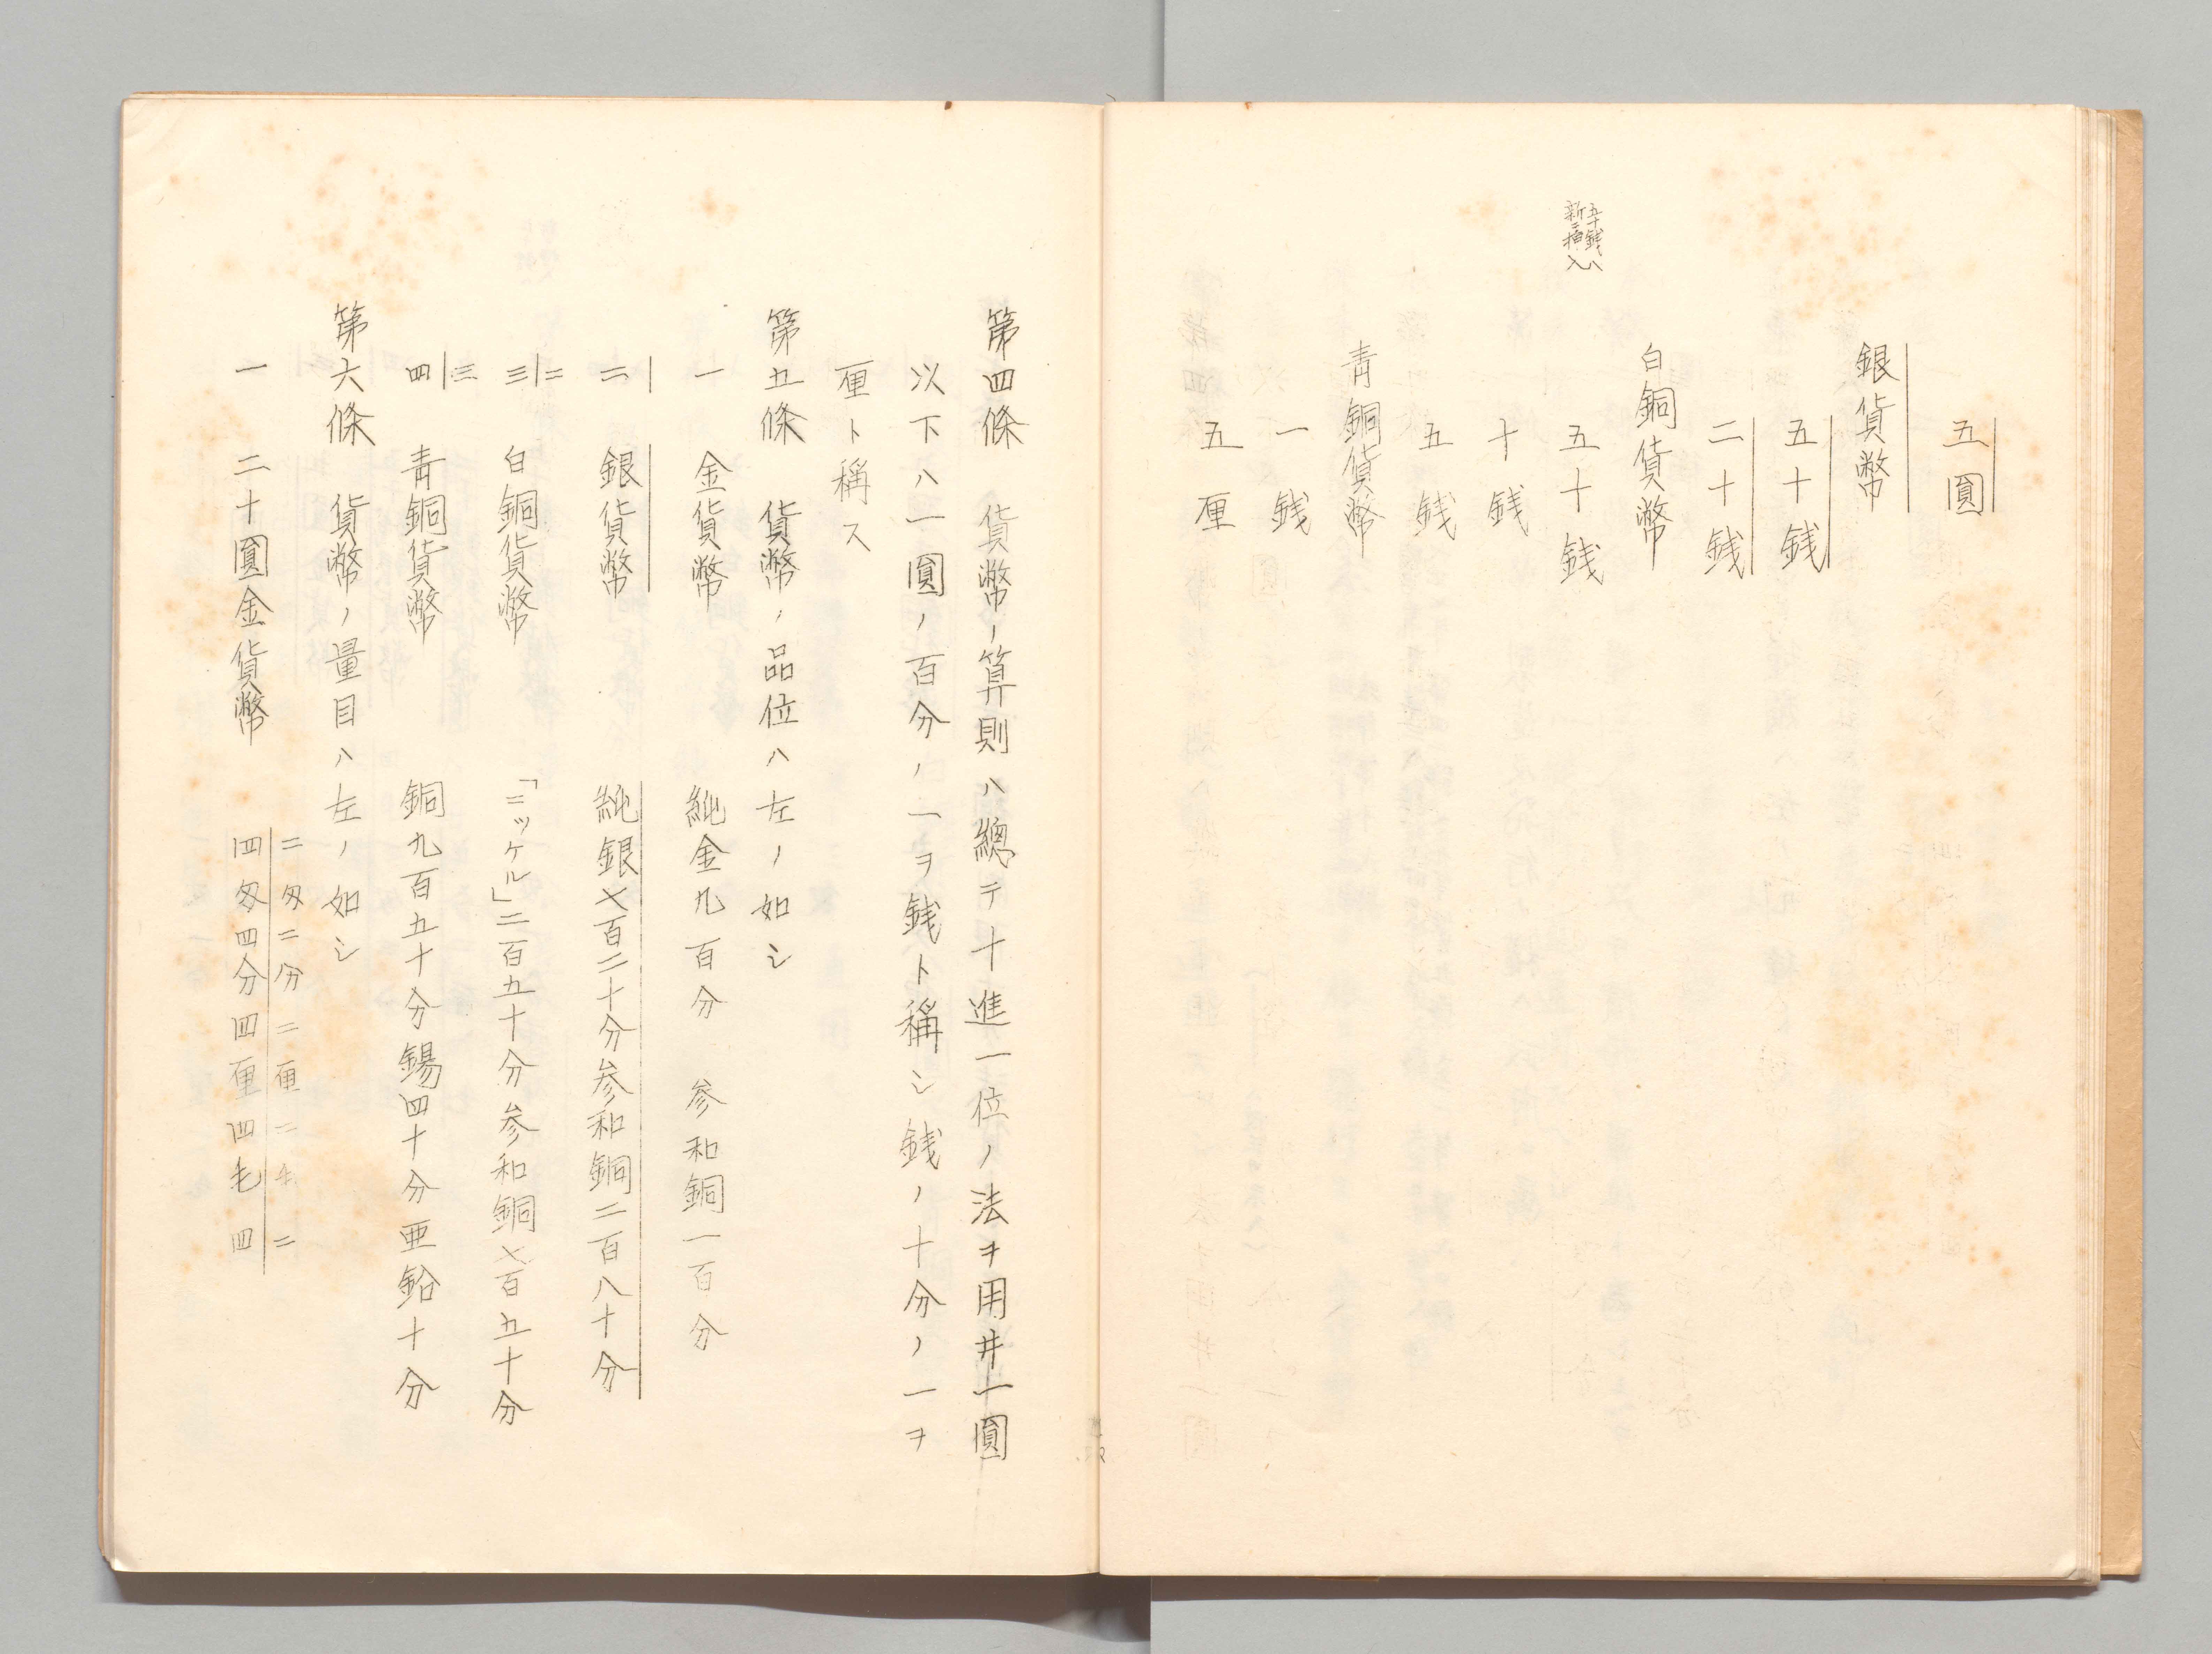 五圓
銀貨幣
五十銭
二十銭
五十銭ハ
新ニ挿入
白銅貨幣
五十銭
十銭
五銭
青銅貨幣
一銭
五厘
第四條　貨幣ノ算則ハ總テ十進一位ノ法ヲ用井一圓
以下ハ一圓ノ百分ノ一ヲ銭ト稱シ銭ノ十分ノ一ヲ
厘ト稱ス
第五條　貨幣ノ品位ハ左ノ如シ
一　金貨幣　純金九百分　参和銅一百分
二　銀貨幣　純銀七百二十分参和銅二百八十分
二
三　白銅貨幣　「ニッケル」二百五十分参和銅七百五十分
三
四　青銅貨幣　銅九百五十分錫四十分亜鉛十分
第六條　貨幣ノ量目ハ左ノ如シ
二匁二分二厘二毛二
一　二十圓金貨幣　四匁四分四厘四毛四